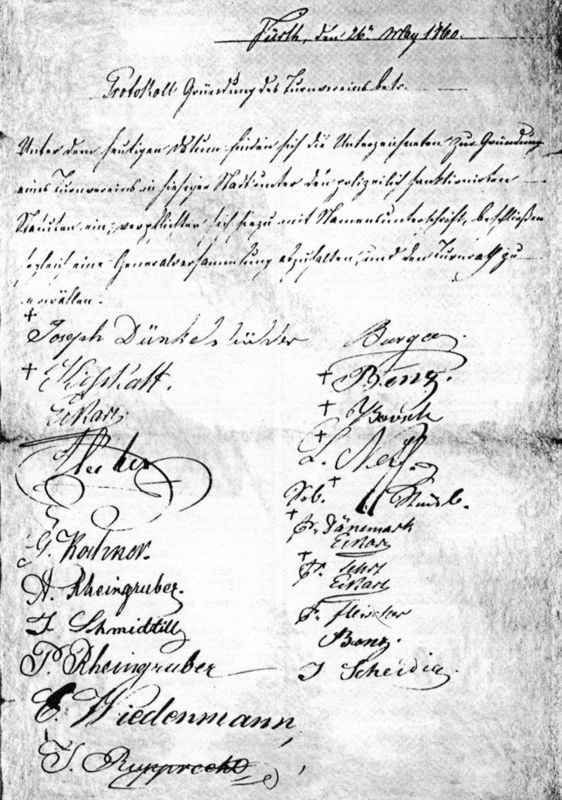 Fürth, den 26ten May 1860.
Protokoll Gründung des Turnvereins betr.
Unter dem heutigen Datum finden sich die Unterzeichneten zur Gründung
eines Turnvereins in hiesiger Stadt unter den polizeilich sanktionirten
Statuten ein, verpflichten sich hiezu mit Namensunterschrift, beschließen
sogleich eine Generalversammlung abzuhalten, und den Turnrath zu
erwählen.
Joseph Dünkelsbühler
Eckart
G. Kochner.
A. Rheingruber.
J. Schmidtill
P. Rheingruber
C. Wiedenmann,
J. Rupprecht
Burger
Benz.
L. Neff.
Seb.
Fr. Dänemark
Eckart
Fr.
Eckart
F. Fleischer
Benz.
J Scheidig.